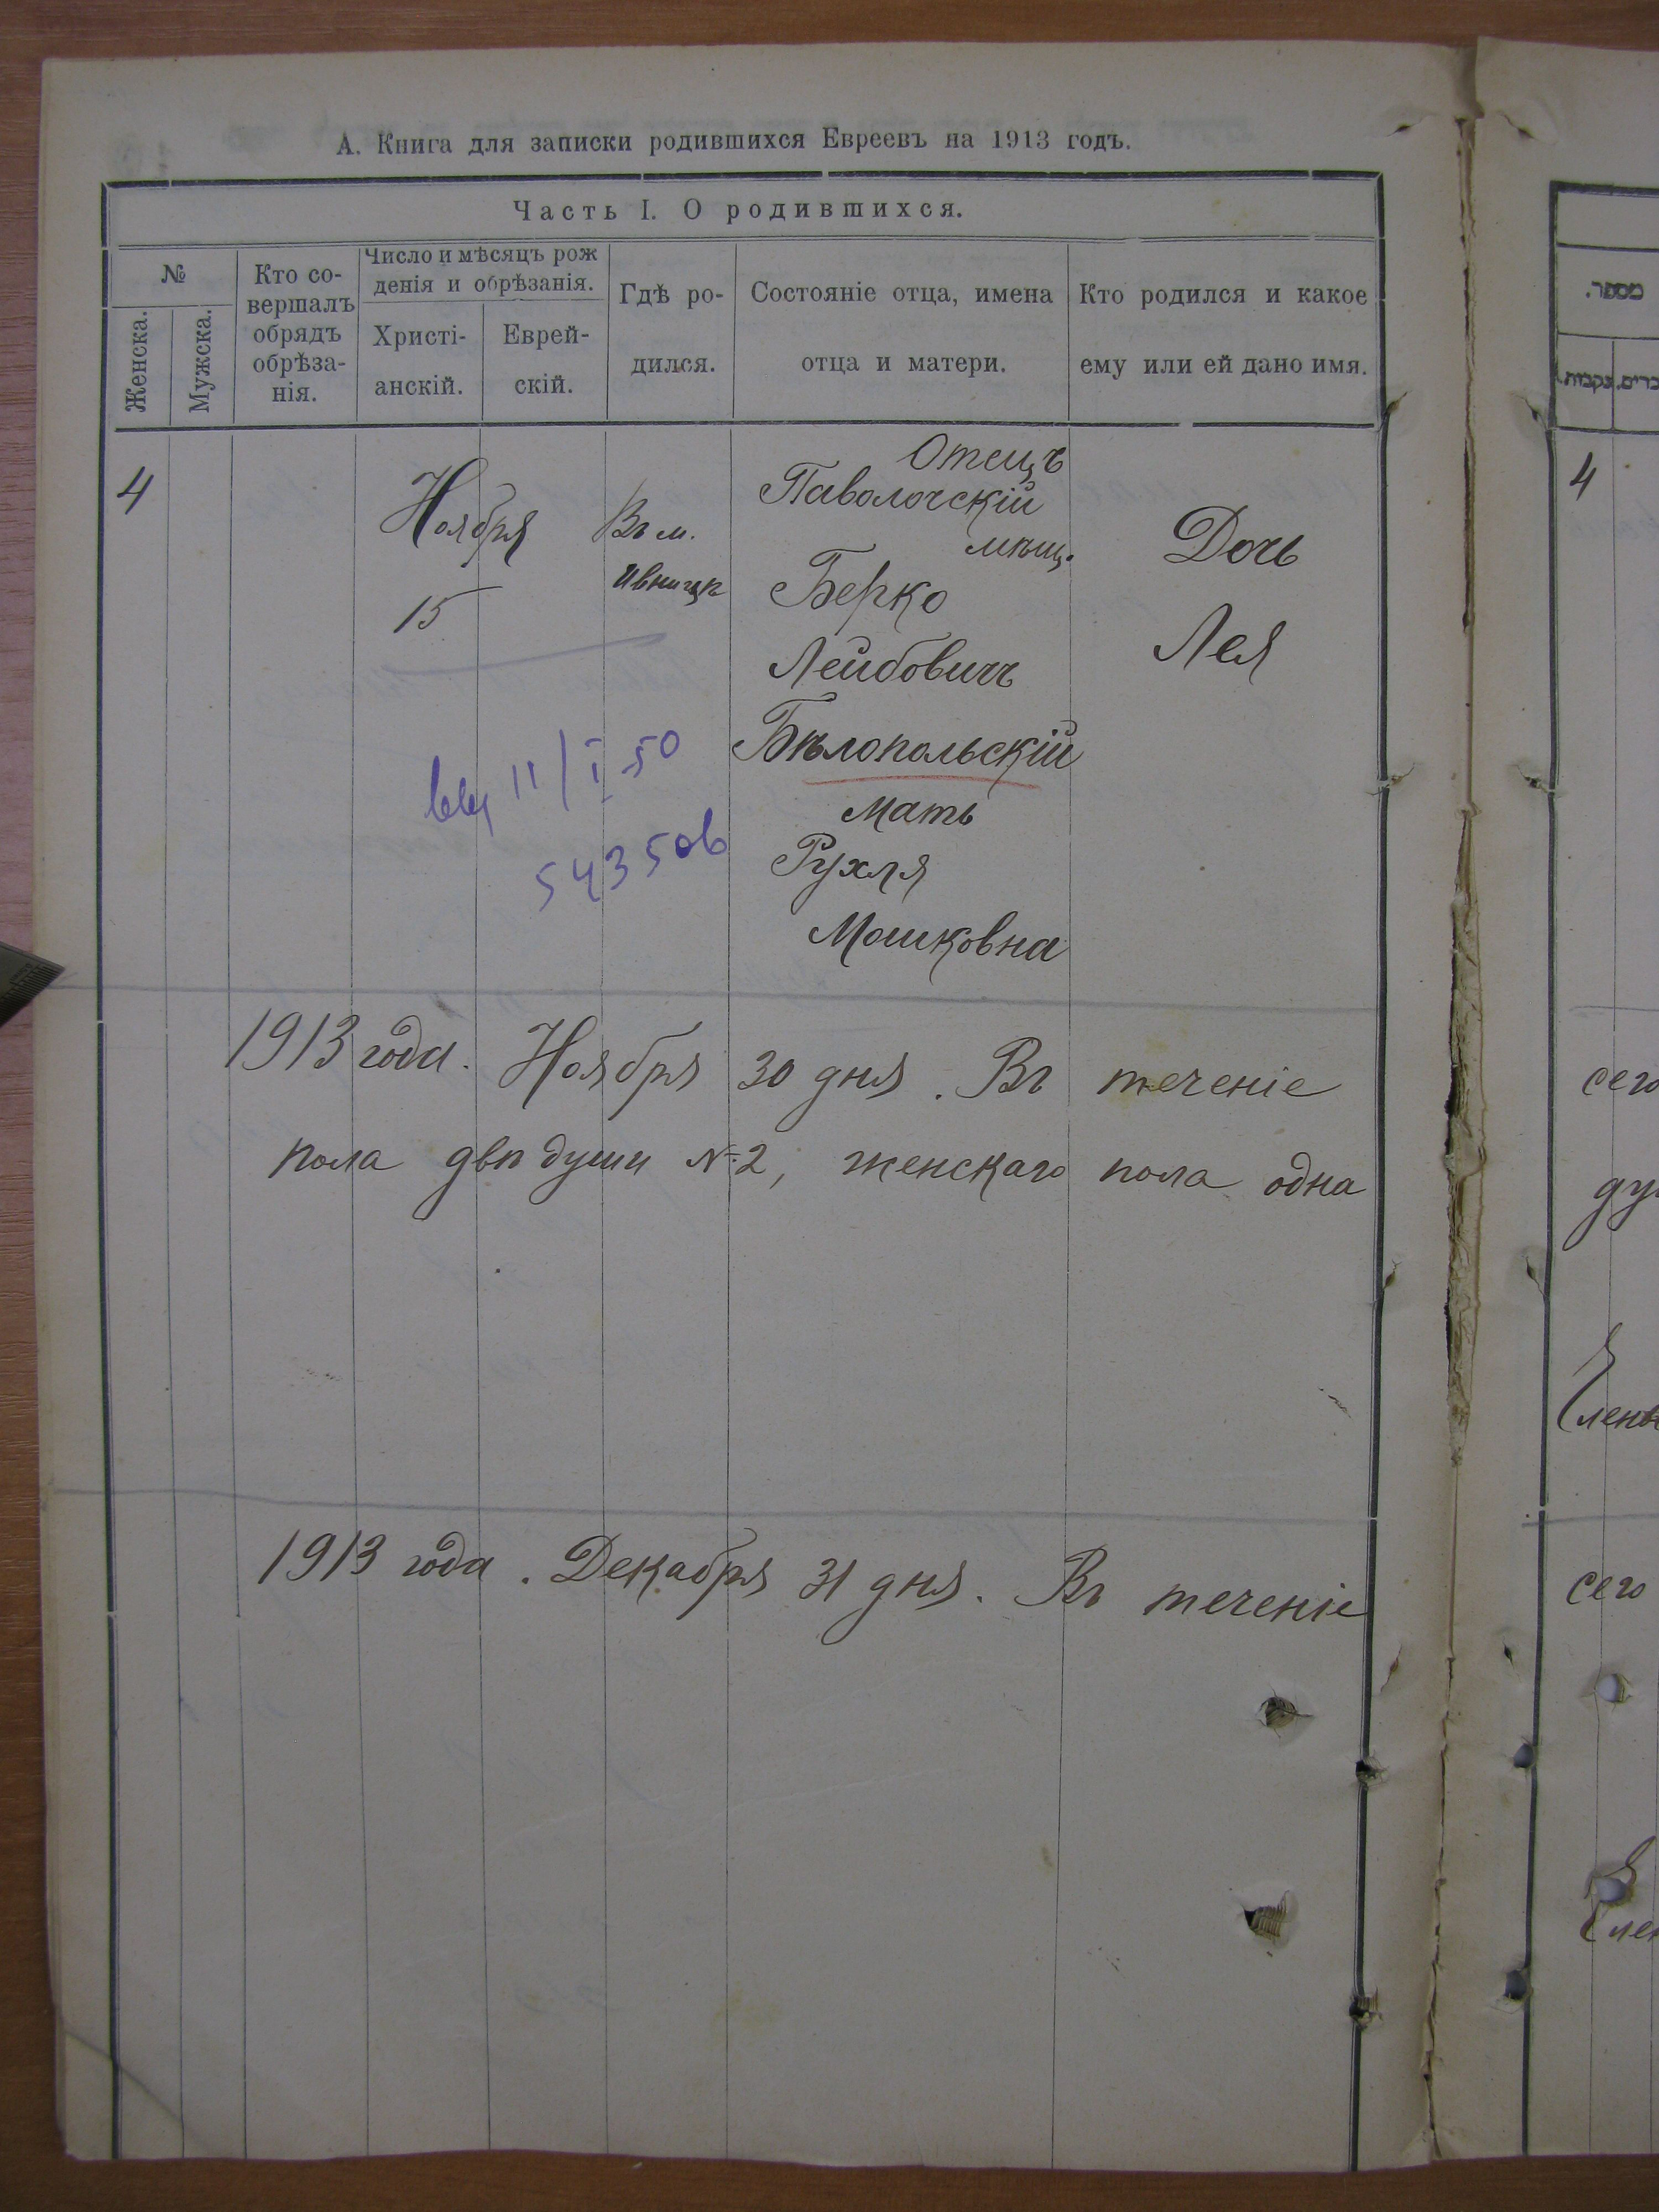 А. Книга для записки родившихся Евреевъ на 1913 годъ.
Часть I. О родившихся.
№
Женска.
Мужска.
Кто со-
вершалъ
обрядъ
обрѣза-
нія.
Число и мѣсяцъ рож
денія и обрѣзанія.
Христі-
анскій.
Еврей-
скій.
Гдѣ ро-
дился.
Состояніе отца, имена
отца и матери.
Кто родился и какое
ему или ей дано имя.
4
Ноября
15
Въ м.
Ивницѣ
Отецъ
Паволочскій
мѣщ.
Берко
Лейбовичъ
Бѣлопольскій
Мать
Рухля
Мошковна
Дочь
Лея
11/I-50
543506
1913 года. Ноября 30 дня. Въ теченіе
пола двѣ души № 2, женскаго пола одна
1913 года. Декабря 31 дня. Въ теченіе
מספר.
נקבות.
4
сего
сего